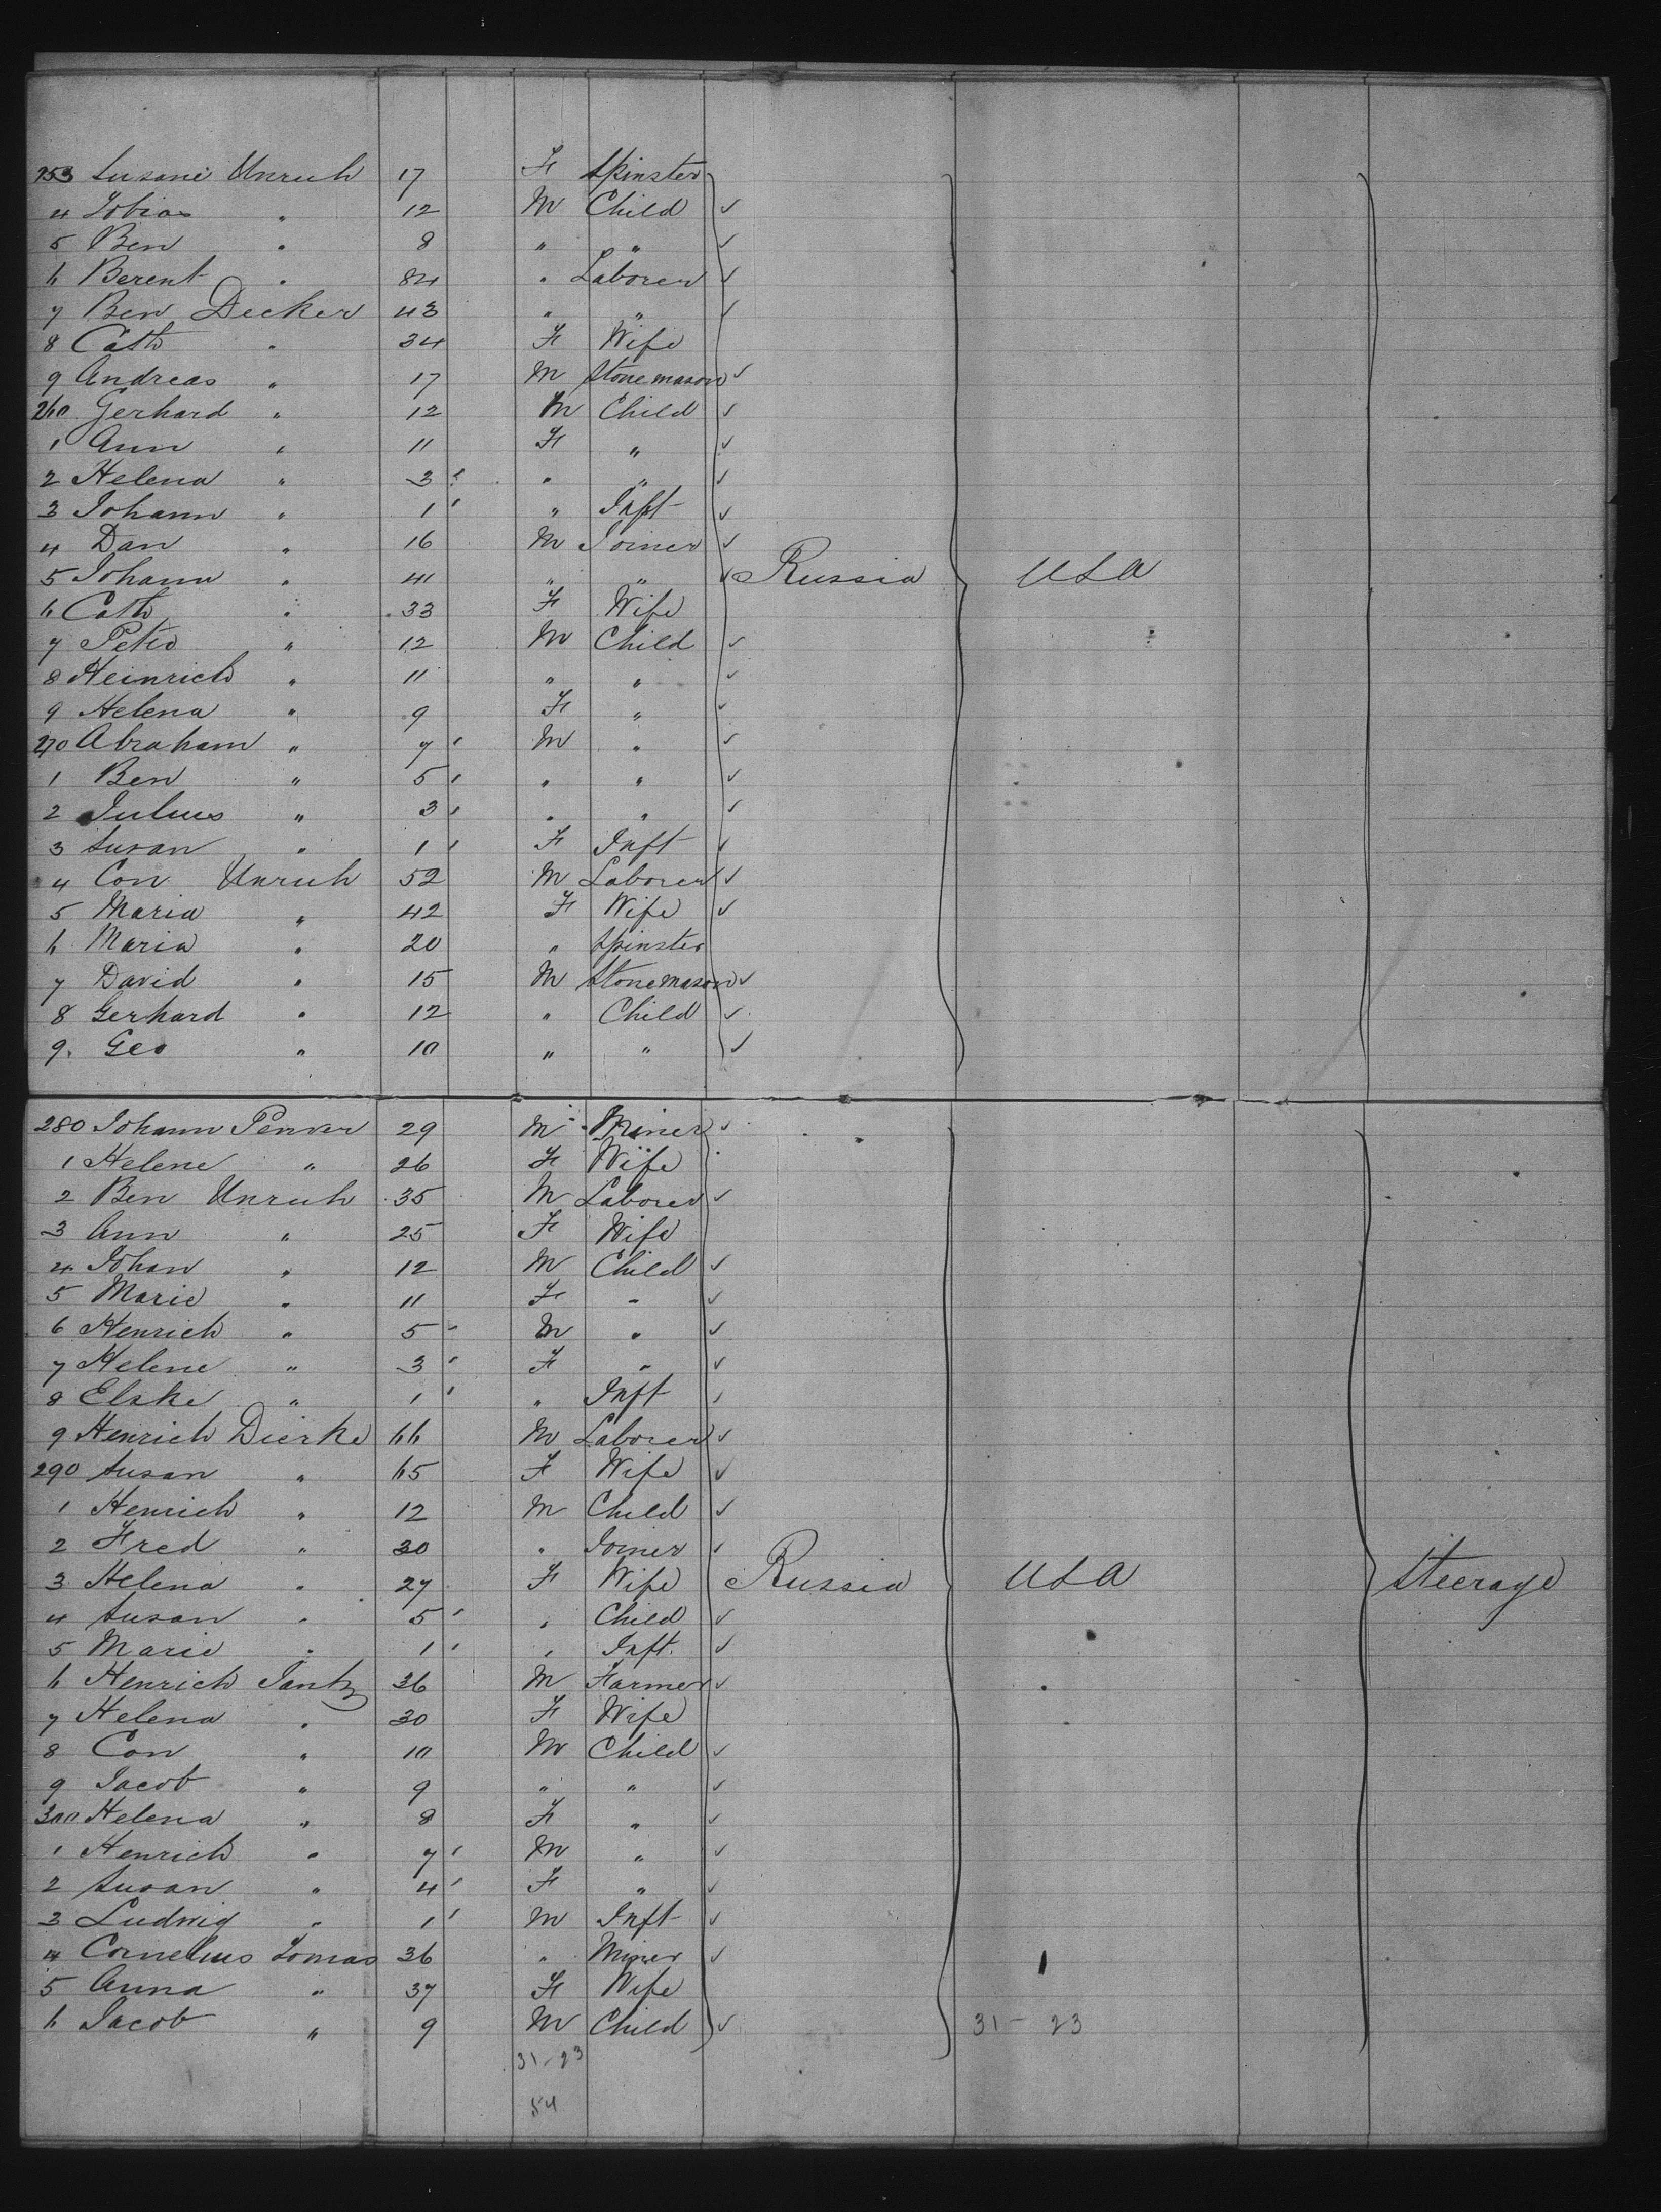 253 Susane Unruh 17 F Spinster
4 Tobias " 12 M Child ✓
5 Ben " 8 " " ✓
6 Berent " 84 " Laborer ✓
7 Ben Decker 43 " " ✓
8 Cath " 34 F Wife
9 Andreas " 17 M Stonemason ✓
260 Gerhard " 12 M Child ✓
1 Ann " 11 F " ✓
2 Helena " 3 " " ✓
3 Johann " 1 " Inft ✓
4 Dan " 16 M Joiner ✓
5 Johann " 41 " " ✓ Russia USA
6 Cath " 33 F Wife
7 Peter " 12 M Child ✓
8 Heinrich " 11 " " ✓
9 Helena " 9 F " ✓
270 Abraham " 7 M " ✓
1 Ben " 5 " " ✓
2 Julius " 3 " " ✓
3 Susan " 1 F Inft ✓
4 Con Unruh 52 M Laborer ✓
5 Maria " 42 F Wife ✓
6 Maria " 20 " Spinster
7 David " 15 M Stonemason ✓
8 Gerhard " 12 " Child ✓
9. Geo " 10 " " ✓
280 Johann Penner 29 M Miner ✓
1 Helene " 26 F Wife
2 Ben Unruh 35 M Laborer ✓
3 Ann " 25 F Wife
4 Johan " 12 M Child ✓
5 Marie " 11 F " ✓
6 Henrich " 5 M " ✓
7 Helene " 3 F " ✓
8 Elske " 1 " Inft
9 Henrich Dierke 66 M Laborer ✓
290 Susan " 65 F Wife ✓
1 Henrich " 12 M Child ✓
2 Fred " 30 " Joiner ✓
3 Helena " 27 F Wife Russia USA Steerage
4 Susan " 5 " Child ✓
5 Marie " 1 " Inft. ✓
6 Henrich Jantz 36 M Farmer ✓
7 Helena " 30 F Wife
8 Con " 10 M Child ✓
9 Jacob " 9 " " ✓
300 Helena " 8 F " ✓
1 Henrich " 7 M " ✓
2 Susan " 4 F " ✓
3 Ludwig " 1 M Inft ✓
4 Cornelius Tomas 36 " Miner ✓
5 Anna " 37 F Wife
6 Jacob " 9 M Child ✓ 31 - 23
31 - 23
54